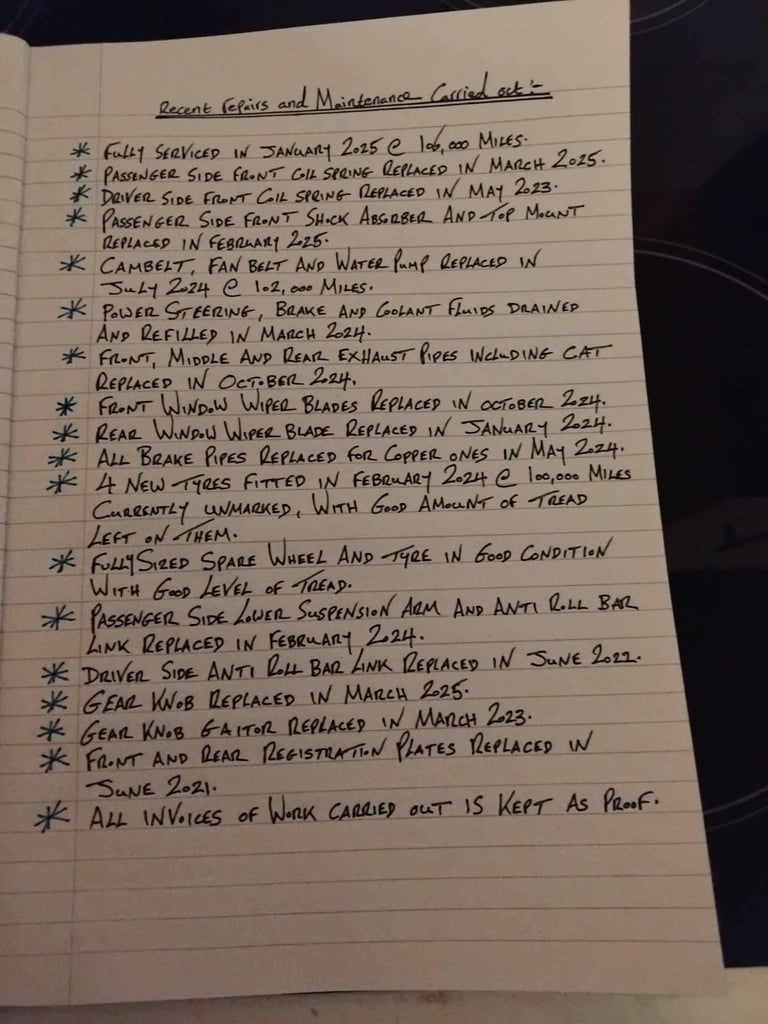 Recent repairs and Maintenance Carried out:-
* FULLY SERVICED IN JANUARY 2025 @ 106,000 MILES.
* PASSENGER SIDE FRONT COIL SPRING REPLACED IN MARCH 2025.
* DRIVER SIDE FRONT COIL SPRING REPLACED IN MAY 2023.
* PASSENGER SIDE FRONT SHOCK ABSORBER AND TOP MOUNT
REPLACED IN FEBRUARY 2025.
* CAMBELT, FAN BELT AND WATER PUMP REPLACED IN
JULY 2024 @ 102,000 MILES.
* POWER STEERING, BRAKE AND COOLANT FLUIDS DRAINED
AND REFILLED IN MARCH 2024.
* FRONT, MIDDLE AND REAR EXHAUST PIPES INCLUDING CAT
REPLACED IN OCTOBER 2024.
* FRONT WINDOW WIPER BLADES REPLACED IN OCTOBER 2024.
* REAR WINDOW WIPER BLADE REPLACED IN JANUARY 2024.
* ALL BRAKE PIPES REPLACED FOR COPPER ONES IN MAY 2024.
* 4 NEW TYRES FITTED IN FEBRUARY 2024 @ 100,000 MILES
CURRENTLY UNMARKED, WITH GOOD AMOUNT OF TREAD
LEFT ON THEM.
* FULLY SIZED SPARE WHEEL AND TYRE IN GOOD CONDITION
WITH GOOD LEVEL OF TREAD.
* PASSENGER SIDE LOWER SUSPENSION ARM AND ANTI ROLL BAR
LINK REPLACED IN FEBRUARY 2024.
* DRIVER SIDE ANTI ROLL BAR LINK REPLACED IN JUNE 2022.
* GEAR KNOB REPLACED IN MARCH 2025.
* GEAR KNOB GAITOR REPLACED IN MARCH 2023.
* FRONT AND REAR REGISTRATION PLATES REPLACED IN
JUNE 2021.
* ALL INVOICES OF WORK CARRIED OUT IS KEPT AS PROOF.